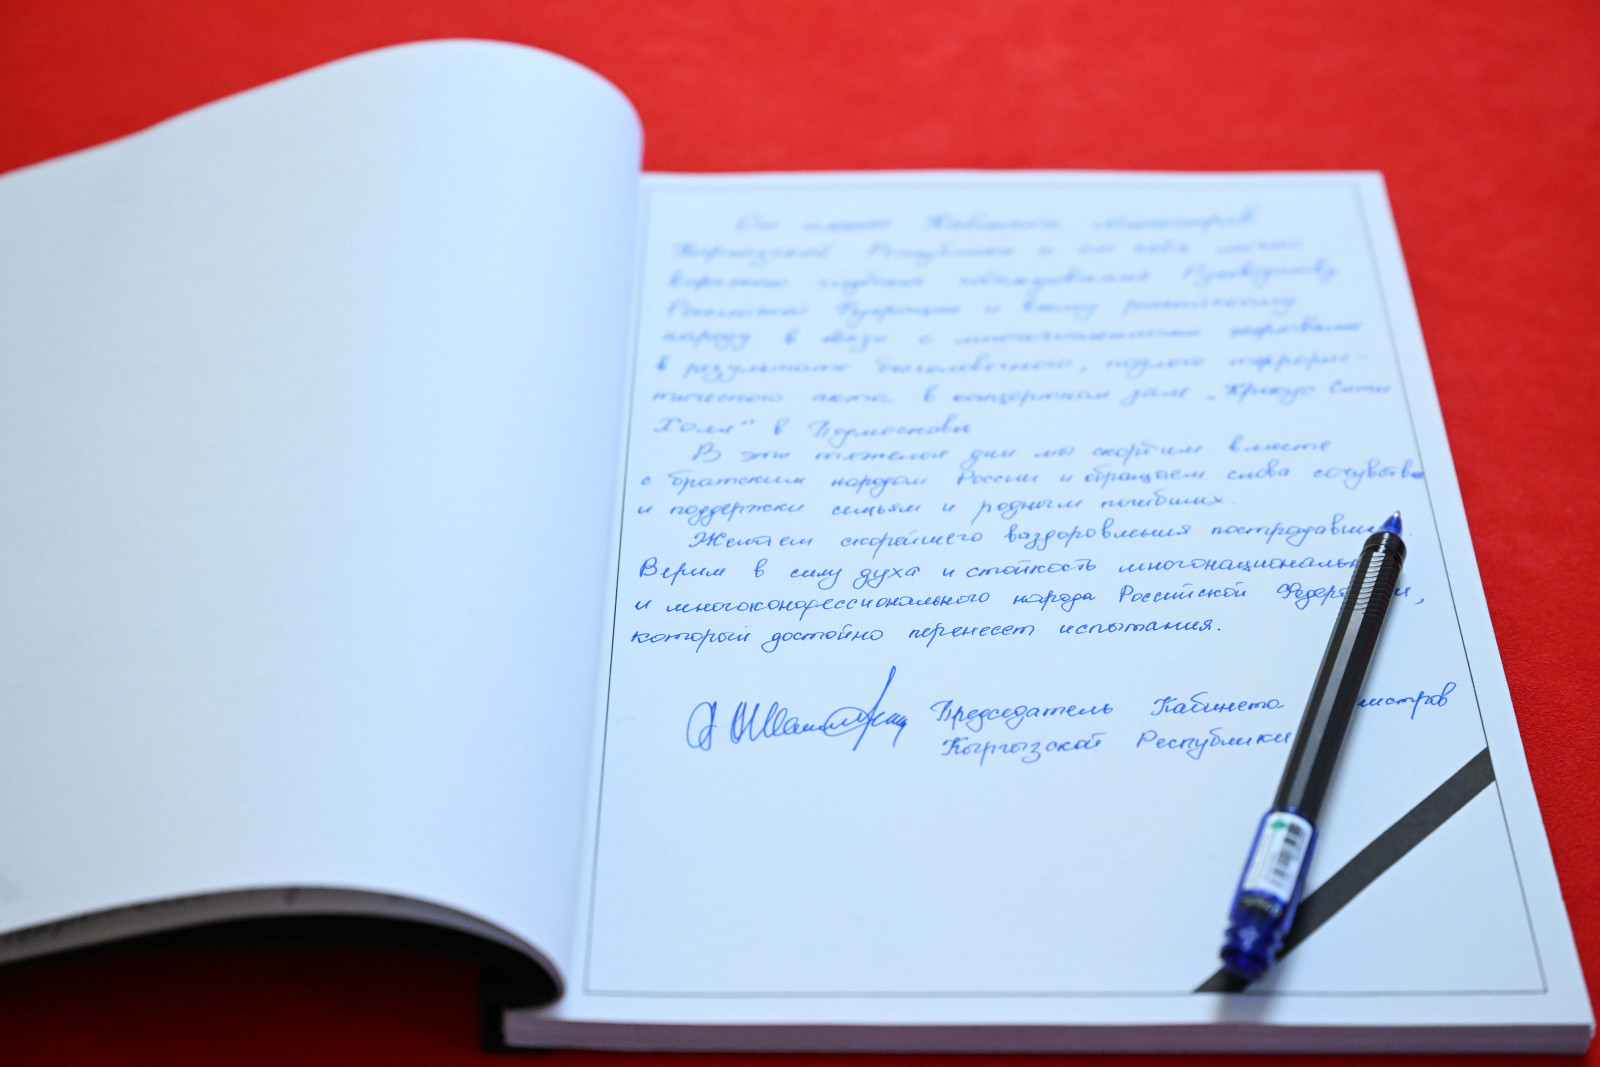 От имени Кабинета Министров
Кыргызской Республики и от себя лично
выражаю глубокие соболезнования Руководству
Российской Федерации и всему российскому
народу в связи с многочисленными жертвами
в результате бесчеловечного, подлого террорис-
тического акта в концертном зале „Крокус Сити
Холл" в Подмосковье
В эти тяжелые дни мы скорбим вместе
с братским народом России и обращаем слова сочувствия
и поддержки семьям и родным погибших.
Желаем скорейшего выздоровления пострадавшим.
Верим в силу духа и стойкость многонациональн
и многоконфессионального народа Российской Федерации,
который достойно перенесет испытания.
Председатель Кабинета Министров
Кыргызской Республики